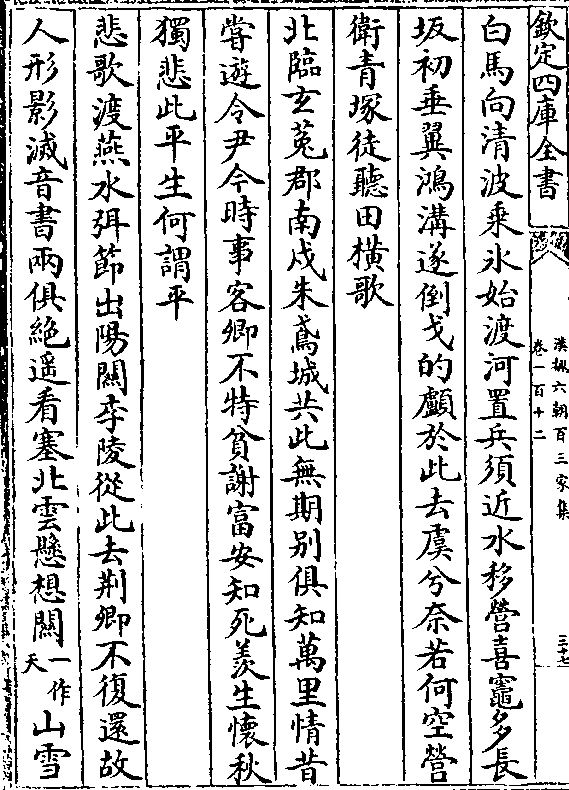 欽定四庫全書
漢魏六朝百三家集
卷一百十二
三十七
白馬向清波乘氷始渡河置兵須近水移營喜竈多長
坂初垂翼鴻溝遂倒戈的顱於此去虞兮奈若何空營
衛青塚徒聽田橫歌
北臨玄菟郡南戍朱鳶城共此無期别俱知萬里情昔
嘗遊令尹今時事客卿不特貧謝富安知死羨生懷秋
獨悲此平生何謂平
悲歌渡燕水弭節出陽關李陵從此去荆卿不復還故
人形影滅音書兩俱絶遥看塞北雲懸想關一作天山雪